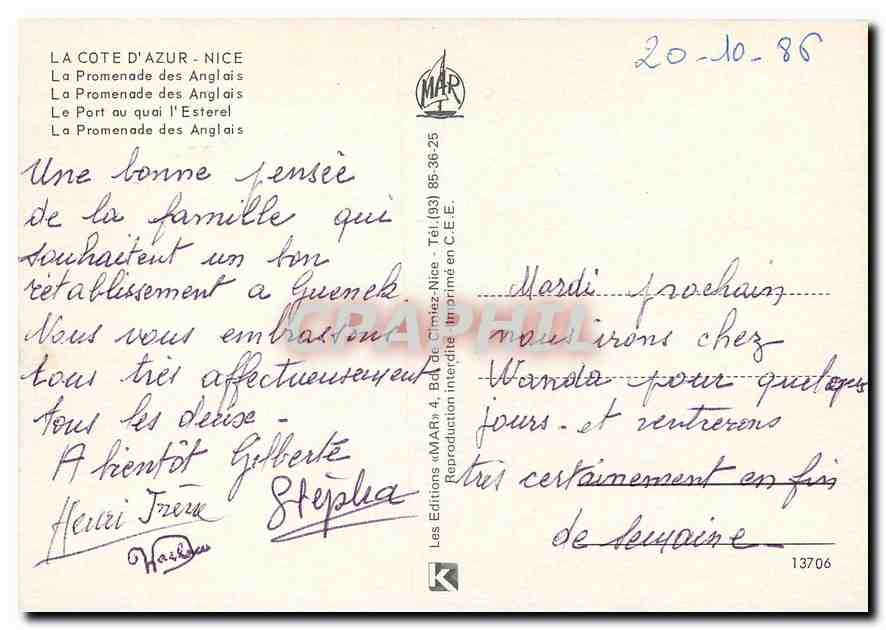 LA COTE D'AZUR - NICE
La Promenade des Anglais
La Promenade des Anglais
Le Port au quai l'Esterel
La Promenade des Anglais
Une bonne pensée
de la famille qui
souhaitent un bon
rétablissement a Guenek
Nous vous embrassons
tous très affectueusement
tous les deux -
A bientôt Gilberte
Henri Frère Stépha
MAR
Les Editions «MAR» 4, Bd. de Cimiez-Nice - Tél.(93) 85-36-25
Reproduction interdite - Imprimé en C.E.E.
K
20-10-86
Mardi prochain
nous irons chez
Wanda pour quelques
jours - et rentrerons
très certainement en fin
de semaine -
13706
CPAPHIL